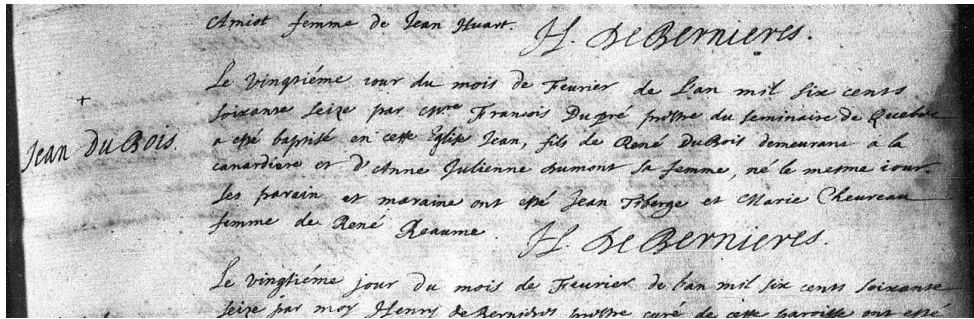 Amiot femme de Jean Huart.
H. de Bernieres.
Le vingtiéme iour du mois de Feurier de L'an mil six cents
soixante seize par Mre Francois Dupré prestre du seminaire de Quebec
Jean du Bois.
a esté baptisé en cette Eglise Jean, fils de René DuBois demeurant a la
canardiere et d'Anne Julienne dumont sa femme, né le mesme iour.
Les parain et maraine ont esté Jean Tiberge et Marie Cheureau
femme de René Reaume.
H. de Bernieres.
Le vingtiéme jour du mois de Feurier de l'an mil six cents soixante
seize par moy Henry de Bernieres prestre curé de cette paroisse ont esté